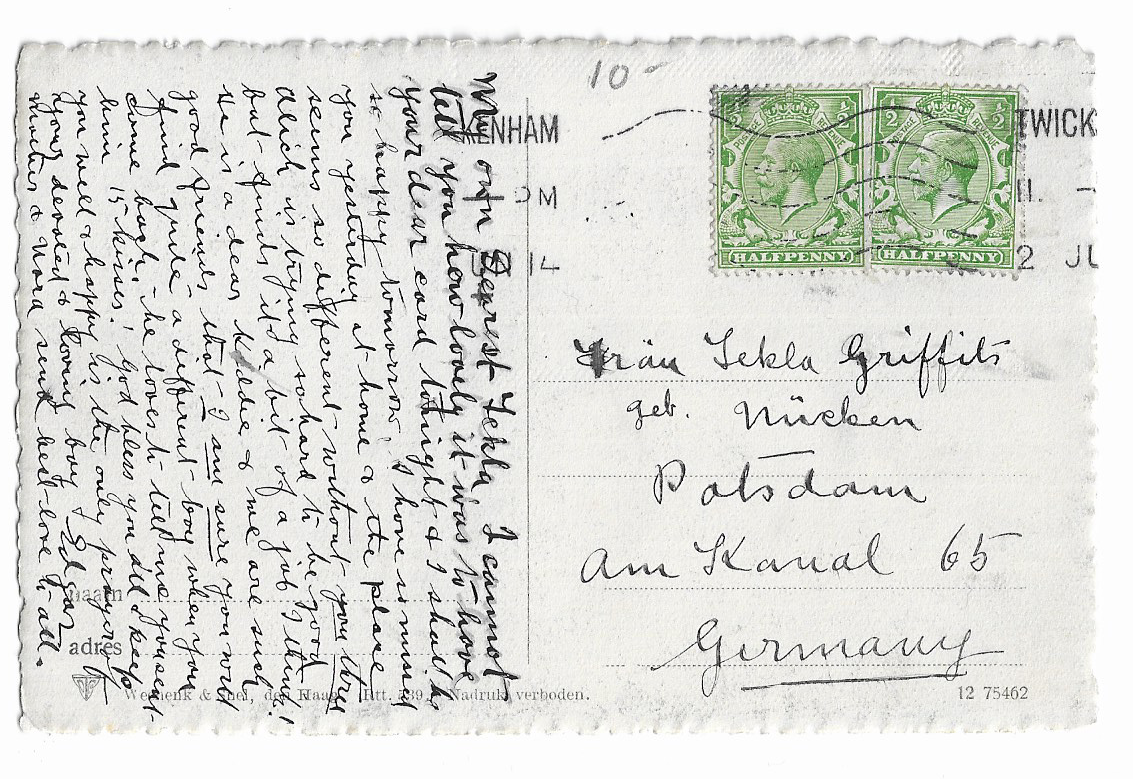 My own Dearest Tekla I cannot
tell you how lovely it was to have
your dear card tonight & I shall be
so happy tomorrow. I have so missed
you yesterday at home & the place
seems so different without you three
is trying so hard to be good
but finds it a bit of a job I think!
He is a dear & me are such
good friends that I am sure you will
find quite a different boy when you
come back - he loves to tell me you sent
him 15 kisses! God bless you all & keep
you well & happy is the only prayer of
your devoted & loving boy Edgar
& Nora send best love to all.
10-
KENHAM
PM
14
TWICK
11. -
2 JU
POSTAGE REVENUE
HALFPENNY
POSTAGE REVENUE
HALFPENNY
Frau Tekla Griffits
geb. Nücken
Potsdam
Am Kanal 65
Germany
naam
adres
Weenenk & Snel, den Haag. Ktt. 739. Nadruk verboden.
12 75462